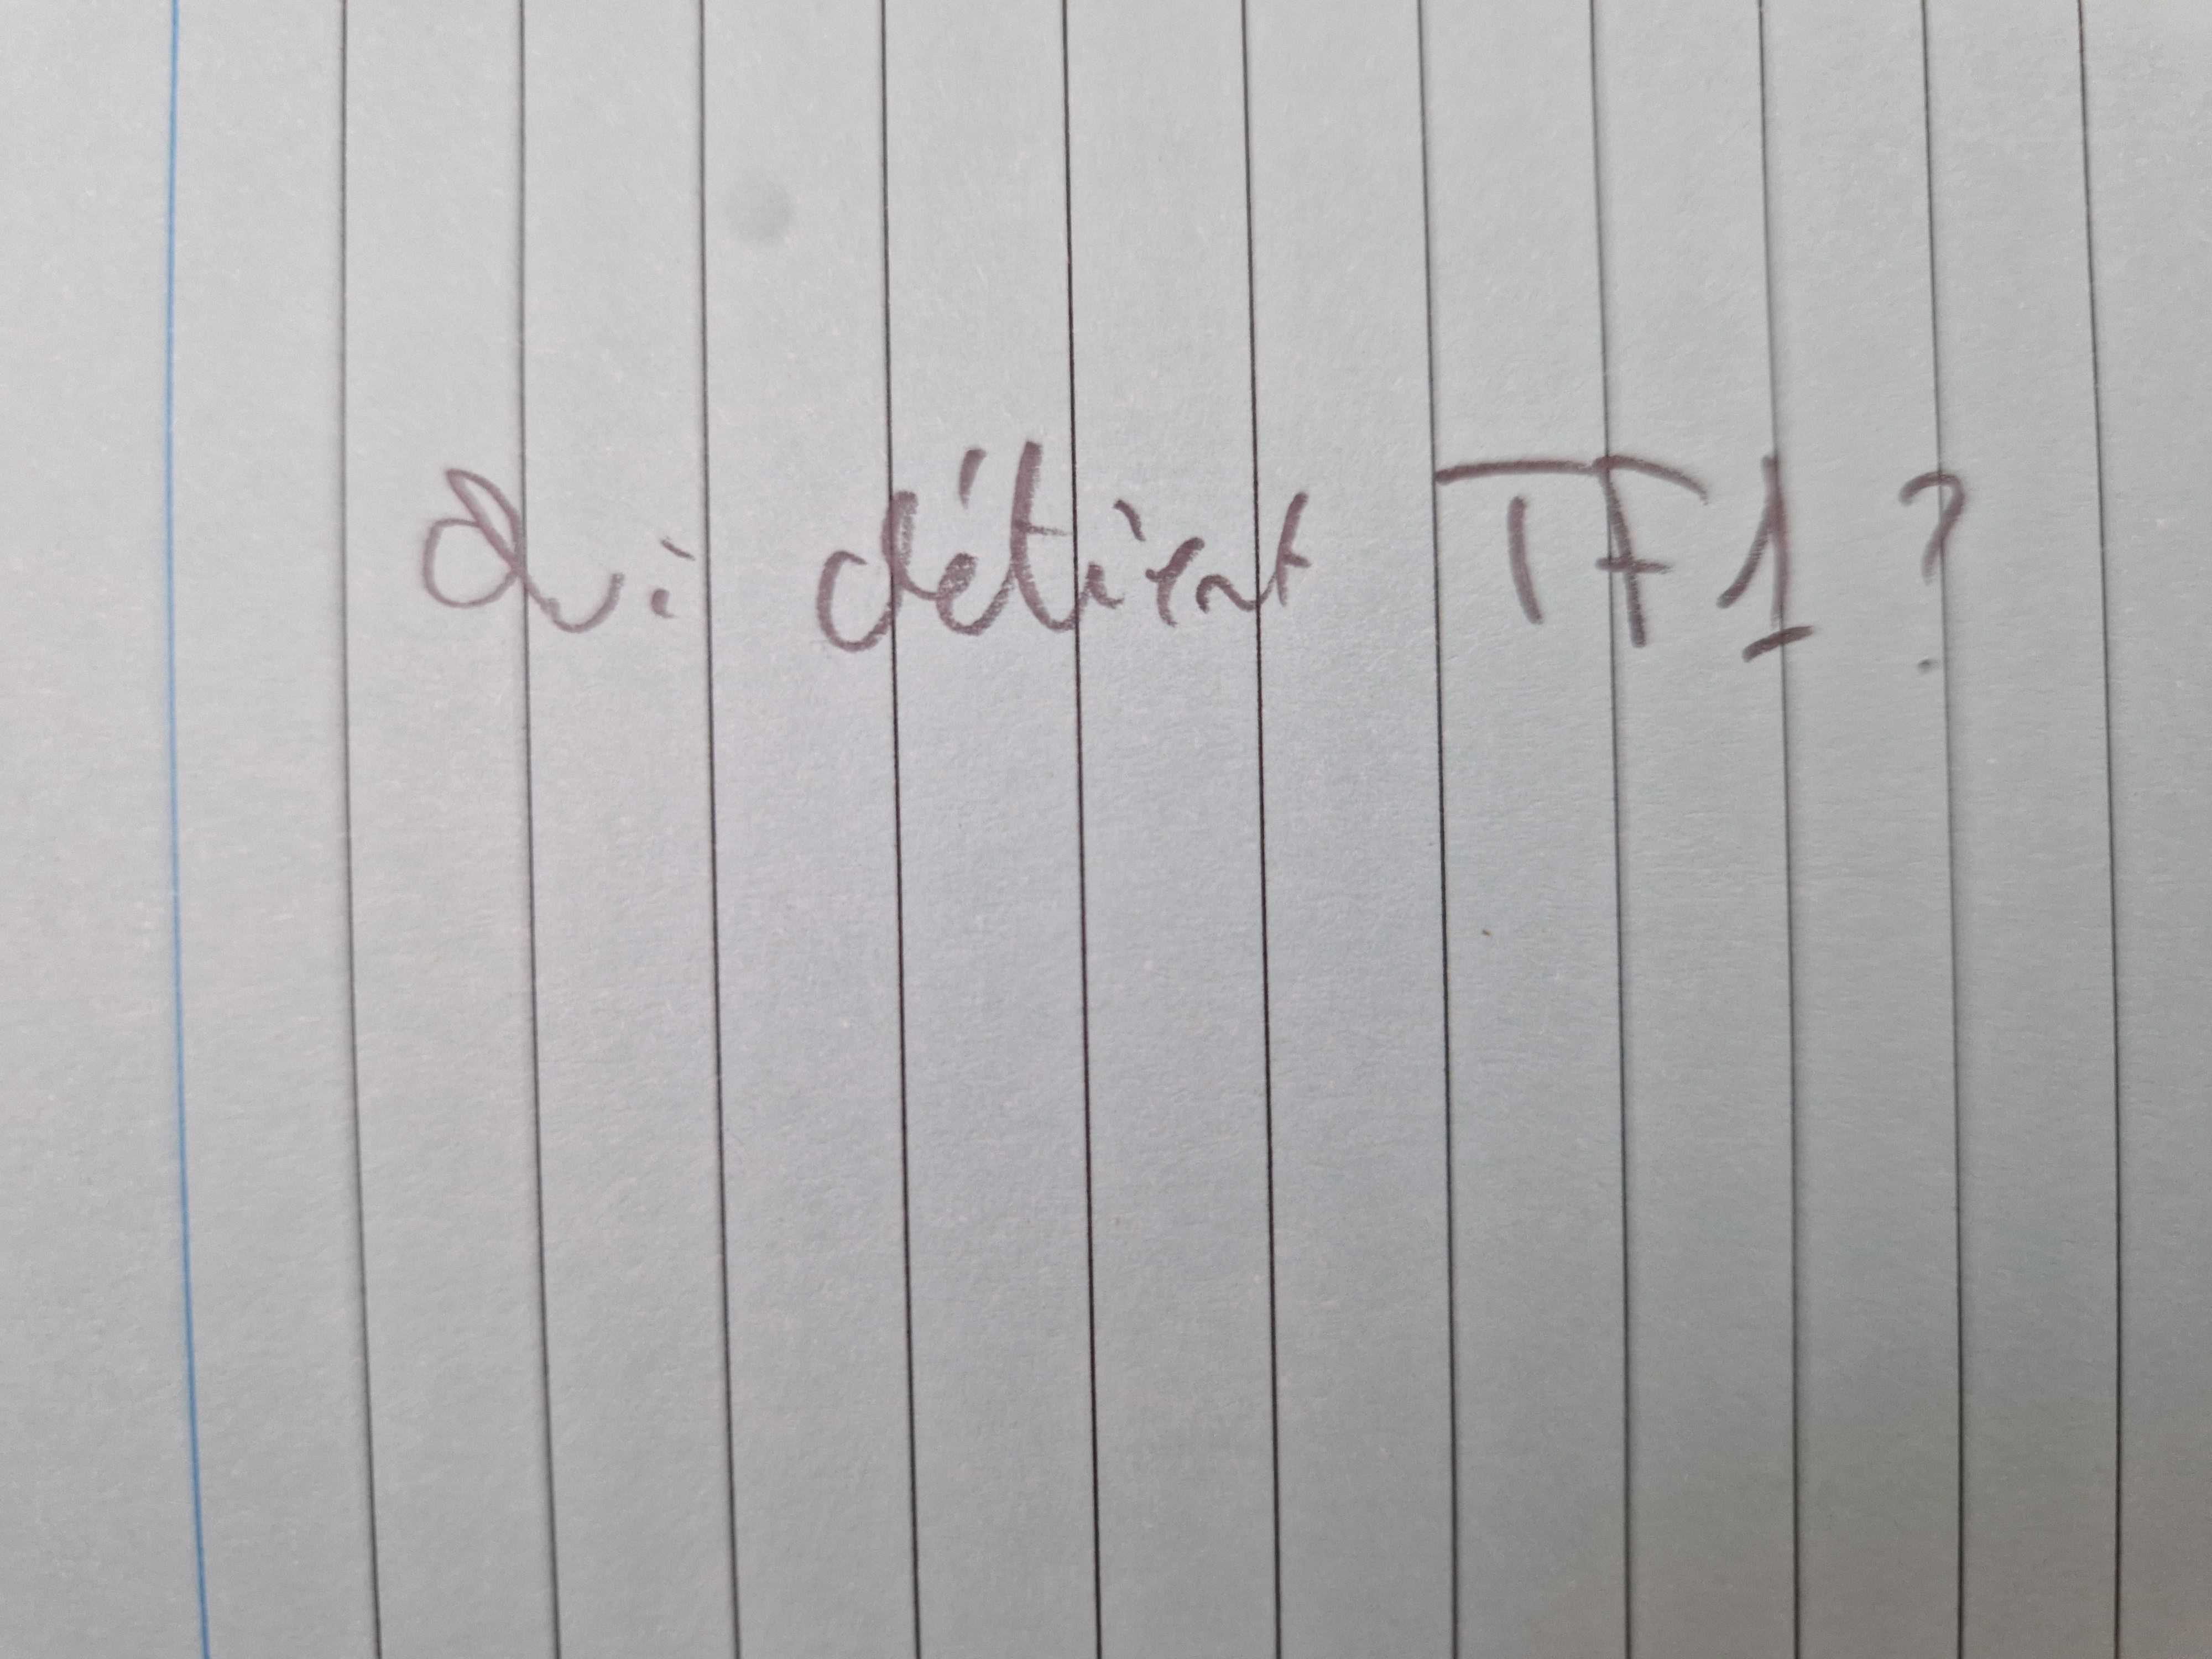 Qui détient TF1 ?